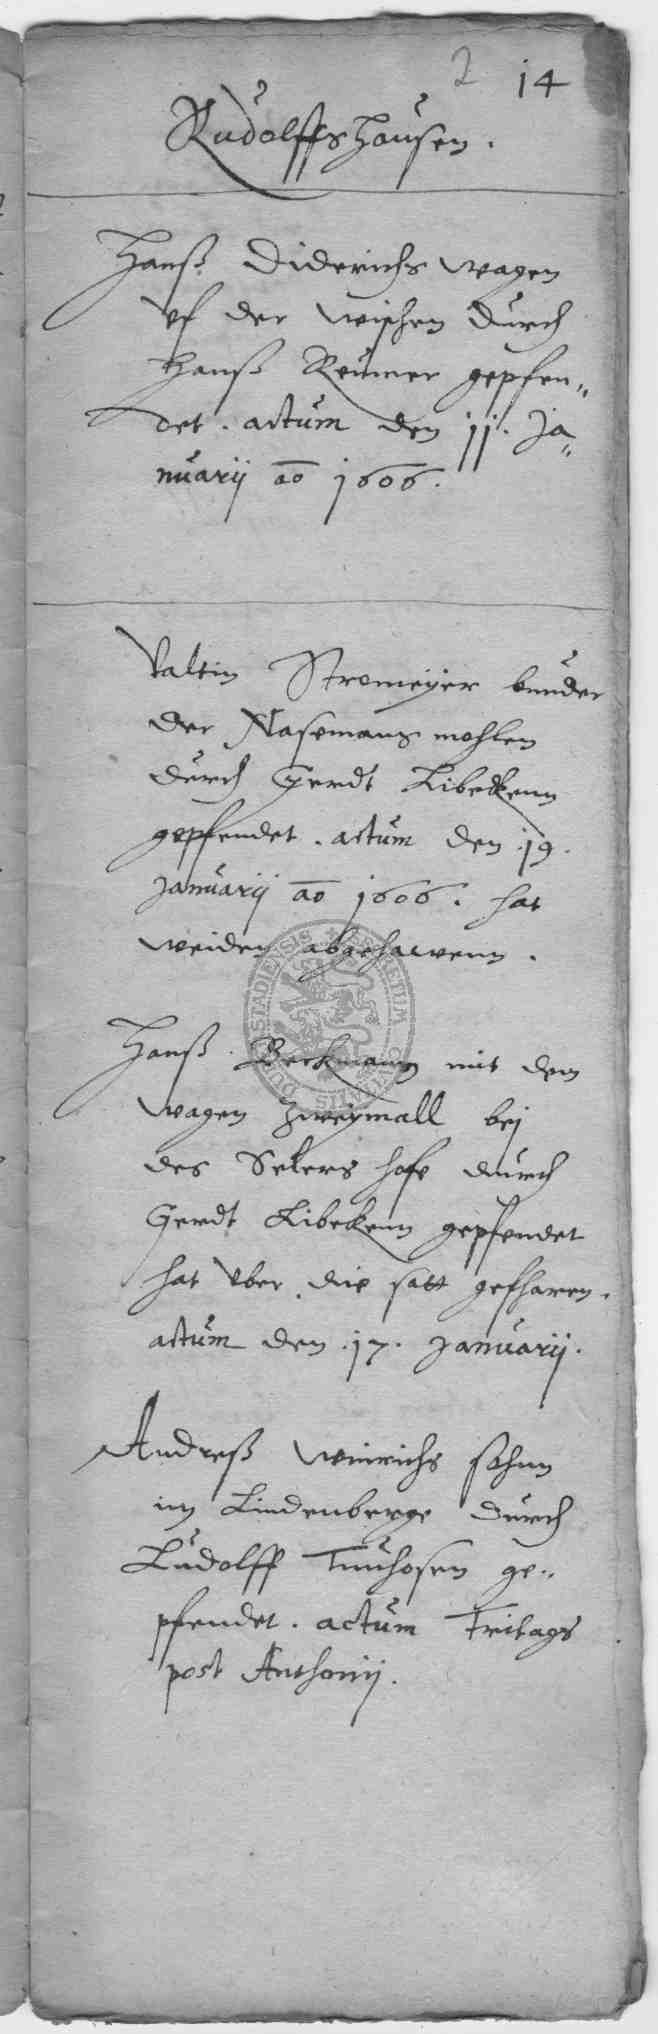 2 14
Rudolffshausen.
Hanß Diderichs wagen
vf der wischen durch
Hanß Reumer gepfen„
det. actum den 11. Ja„
nuarij ao 1606.
Valtin Stromeyer
der Nasemans mohlen
durch Gerdt Libeckenn
gepfendet. actum den .19.
Januarij ao 1606. hat
weiden abgehawenn.
Hanß Beckmann mit dem
wagen zweymall bej
des Sekers hofe durch
Gerdt Libeckenn gepfendet
hat vber die satt gefharen.
actum den .17. Januarij.
Andreß Winrichs sohnn
im Lindenberge durch
Ludolff ge„
pfendet. actum Fritags
post Anthonij.